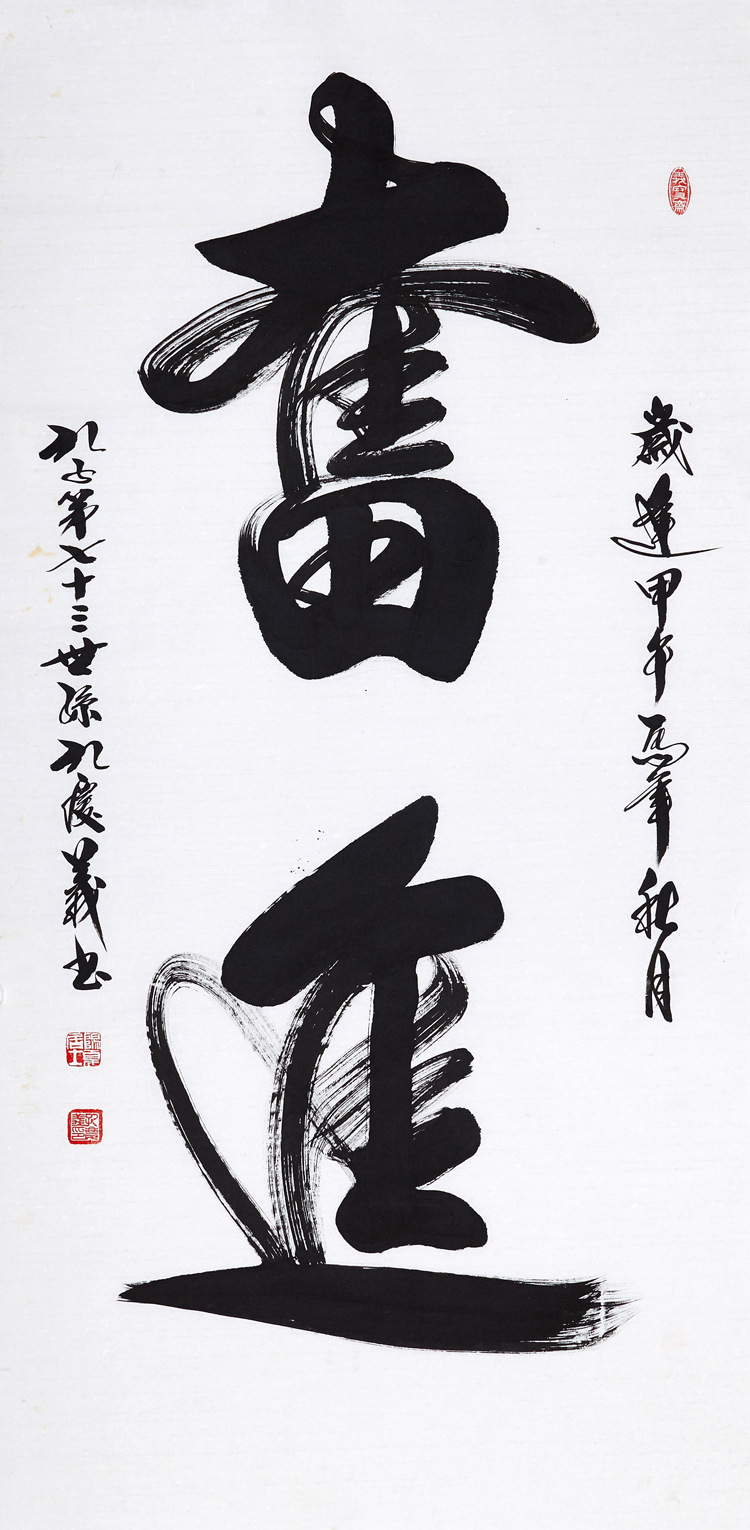 奮進
歲逢甲午馬年秋月
孔子第七十三世孫孔慶義书